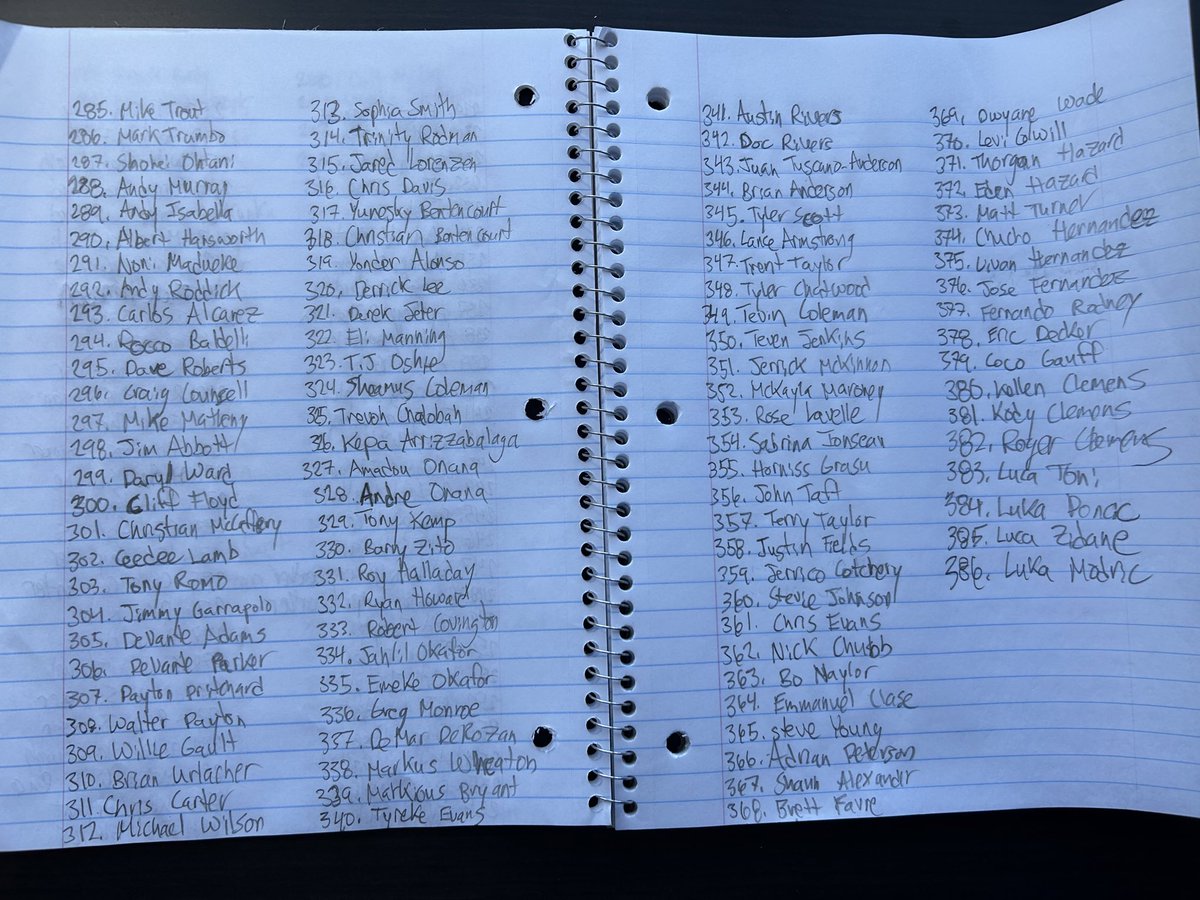 285. Mike Trout
286. Mark Trumbo
287. Shohei Ohtani
288. Andy Murray
289. Andy Isabella
290. Albert Hainsworth
291. Noni Madueke
292. Andy Roddick
293. Carlos Alcarez
294. Rocco Baldelli
295. Dave Roberts
296. Craig Counsell
297. Mike Matheny
298. Jim Abbott
299. Daryl Ward
300. Cliff Floyd
301. Christian McCaffery
302. Ceedee Lamb
303. Tony Romo
304. Jimmy Garrapolo
305. DeVante Adams
306. DeVante Parker
307. Payton Pritchard
308. Walter Payton
309. Willie Gault
310. Brian Urlacher
311 Chris Carter
312. Michael Wilson
313. Sophia Smith
314. Trinity Rodman
315. Jared Lorenzen
316. Chris Davis
317. Yunosky Bentencourt
318. Christian Bentencourt
319. Yonder Alonso
320. Derrick Lee
321. Derek Jeter
322. Eli Manning
323. T.J. Oshie
324. Sheamus Coleman
325. Trevoh Chalobah
326. Kepa Arrizzabalaga
327. Amadou Onana
328. Andre Onana
329. Tony Kemp
330. Barry Zito
331. Roy Halladay
332. Ryan Howard
333. Robert Covington
334. Jahlil Okafor
335. Emeke Okafor
336. Greg Monroe
337. DeMar DeRozan
338. Markus Wheaton
339. Markious Bryant
340. Tyreke Evans
341. Austin Rivers
342. Doc Rivers
343. Juan Tuscano-Anderson
344. Brian Anderson
345. Tyler Scott
346. Lance Armstrong
347. Trent Taylor
348. Tyler Chatwood
349. Tevin Coleman
350. Teven Jenkins
351. Jerrick McKinnon
352. McKayla Maroney
353. Rose Lavelle
354. Sabrina Ionseau
355. Horniss Grasu
356. John Taft
357. Terry Taylor
358. Justin Fields
359. Jerrico Cotchery
360. Stevie Johnson
361. Chris Evans
362. Nick Chubb
363. Bo Naylor
364. Emmanuel Clase
365. Steve Young
366. Adrian Peterson
367. Shaun Alexandr
368. Brett Favre
369. Dwyane Wade
370. Levi Colwill
371. Thorgan Hazard
372. Eden Hazard
373. Matt Turner
374. Chucho Hernandez
375. Livan Hernandez
376. Jose Fernandez
377. Fernando Rodney
378. Eric Decker
379. Coco Gauff
380. Kellen Clemens
381. Kody Clemens
382. Roger Clemens
383. Luca Toni
384. Luka Doncic
385. Luca Zidane
386. Luka Modric